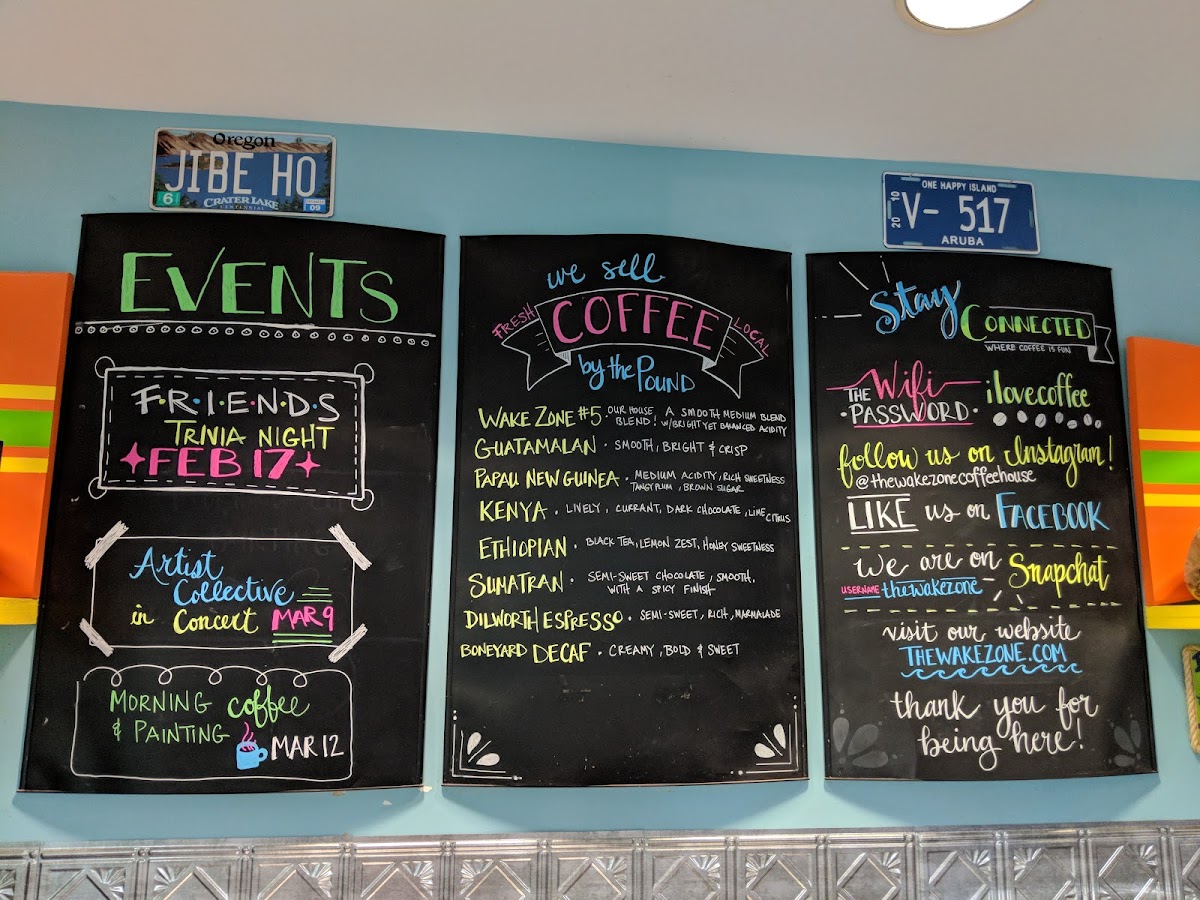 Oregon
JIBE HO
6 CRATER LAKE 09
CENTENNIAL
EVENTS
F·R·I·E·N·D·S
TRIVIA NIGHT
FEB 17
Artist
Collective
in Concert MAR 9
MORNING coffee
& PAINTING
MAR 12
we sell
FRESH COFFEE LOCAL
by the POUND
WAKE ZONE #5 · OUR HOUSE BLEND! A SMOOTH MEDIUM BLEND
W/BRIGHT YET BALANCED ACIDITY
GUATAMALAN · SMOOTH, BRIGHT & CRISP
PAPAU NEW GUINEA · MEDIUM ACIDITY, RICH SWEETNESS
TANGY PLUM, BROWN SUGAR
KENYA · LIVELY, CURRANT, DARK CHOCOLATE, LIME CITRUS
ETHIOPIAN · BLACK TEA, LEMON ZEST, HONEY SWEETNESS
SUMATRAN · SEMI-SWEET CHOCOLATE, SMOOTH,
WITH A SPICY FINISH
DILWORTH ESPRESSO · SEMI-SWEET, RICH, MARMALADE
BONEYARD DECAF · CREAMY, BOLD & SWEET
ONE HAPPY ISLAND
2010 V- 517
ARUBA
Stay
CONNECTED
WHERE COFFEE IS FUN
THE Wifi
·PASSWORD· ilovecoffee
follow us on Instagram!
@thewakezonecoffeehouse
LIKE us on FACEBOOK
we are on Snapchat
USERNAME thewakezone
visit our website
THEWAKEZONE.COM
thank you for
being here!